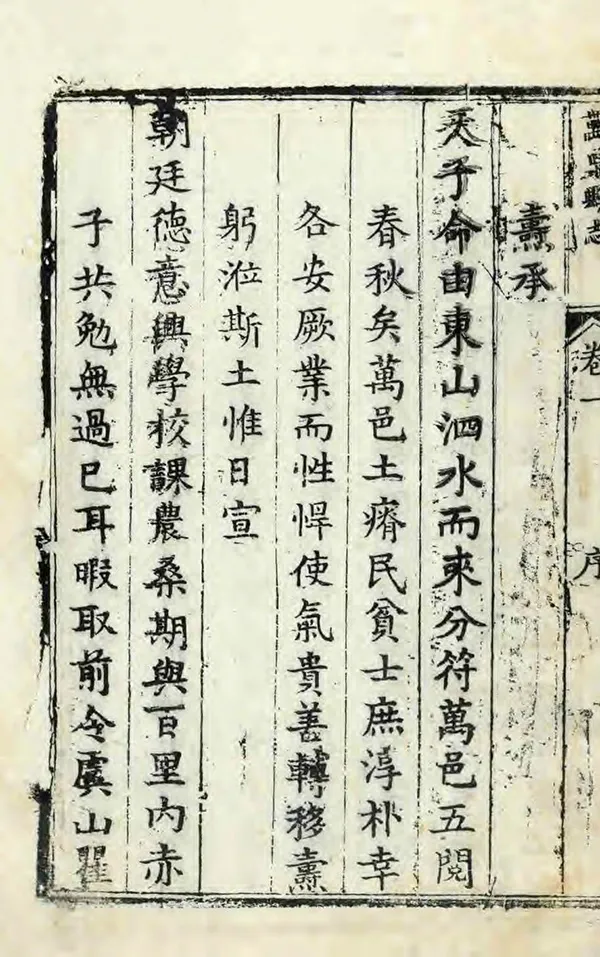 縣志 卷一 序
燾承
天子命由東山泗水而來分符萬邑五閱
春秋矣萬邑土瘠民貧士庶淳朴幸
各安厥業而性悍使氣貴善轉移燾
躬涖斯土惟日宣
朝廷德意興學校課農桑期與百里內赤
子共勉無過已耳暇取前令虞山瞿